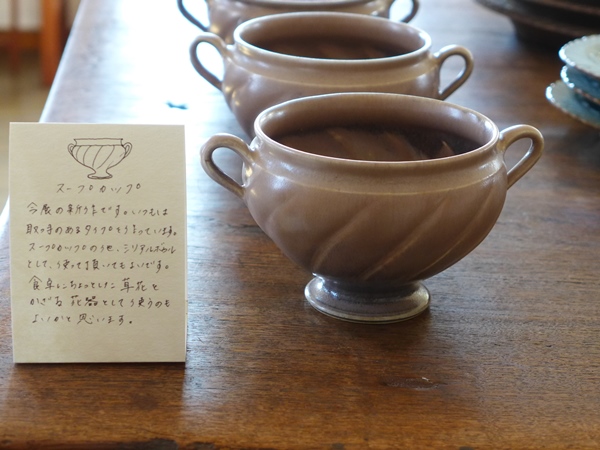 スープカップ
今展の新作です。いつもは
取っ手のあるタイプをつくっています。
スープカップのうせ、シリアルボウル
として、う使って頂いてもよいです。
食卓にちょっとした草花を
かざる 花器としてう使うのも
よいかと思います。